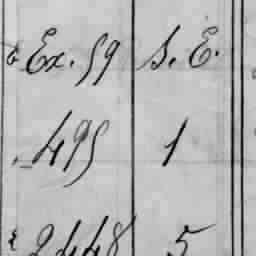 Ex. 59 S. E.
495 1
2448 5